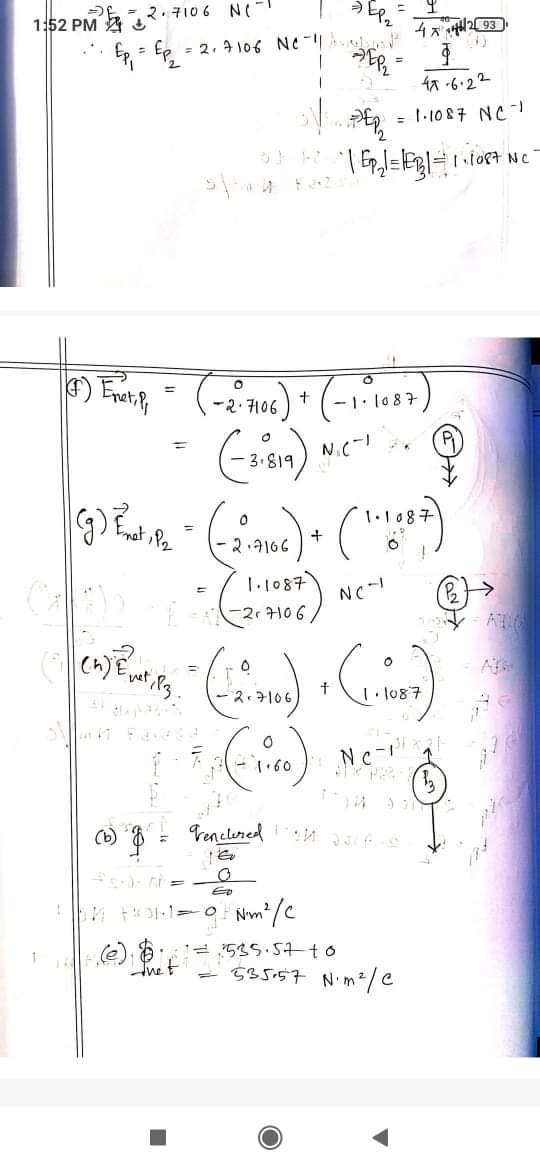 1:52 PM
93
⇒E = 2.7106 NC⁻¹
∴ E_P₁ = E_P₂ = 2.7106 NC⁻¹
⇒ E_P₂ =
⇒E_P₂ = Φ / 4π·6.2²
⇒E_P₂ = 1.1087 NC⁻¹
|E_P₂|=|E_P₃|= 1.1087 NC⁻
(f) E⃗net,P₁ = (0 / -2.7106) + (0 / -1.1087)
= (0 / -3.819) N.C⁻¹
P₁
(g) E⃗net,P₂ = (0 / -2.7106) + (1.1087 / 0)
= (1.1087 / -2.7106) NC⁻¹
P₂
(h) E⃗net,P₃. = (0 / -2.7106) + (0 / 1.1087)
= (0 / -1.60) NC⁻¹
P₃
(b) Φ = qenclosed / ε₀
= 0 / ε₀
= 0 Nm²/C
(e) Φnet = 535.57 + 0
= 535.57 N·m²/C